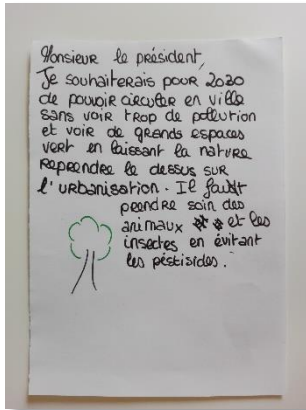 Monsieur le président,
Je souhaiterais pour 2020
de pouvoir circuler en ville
sans voir trop de pollution
et voir de grands espaces
vert en laissant la nature
reprendre le dessus sur
l'urbanisation. Il faut
prendre soin des
animaux et les
insectes en évitant
les péstisides.